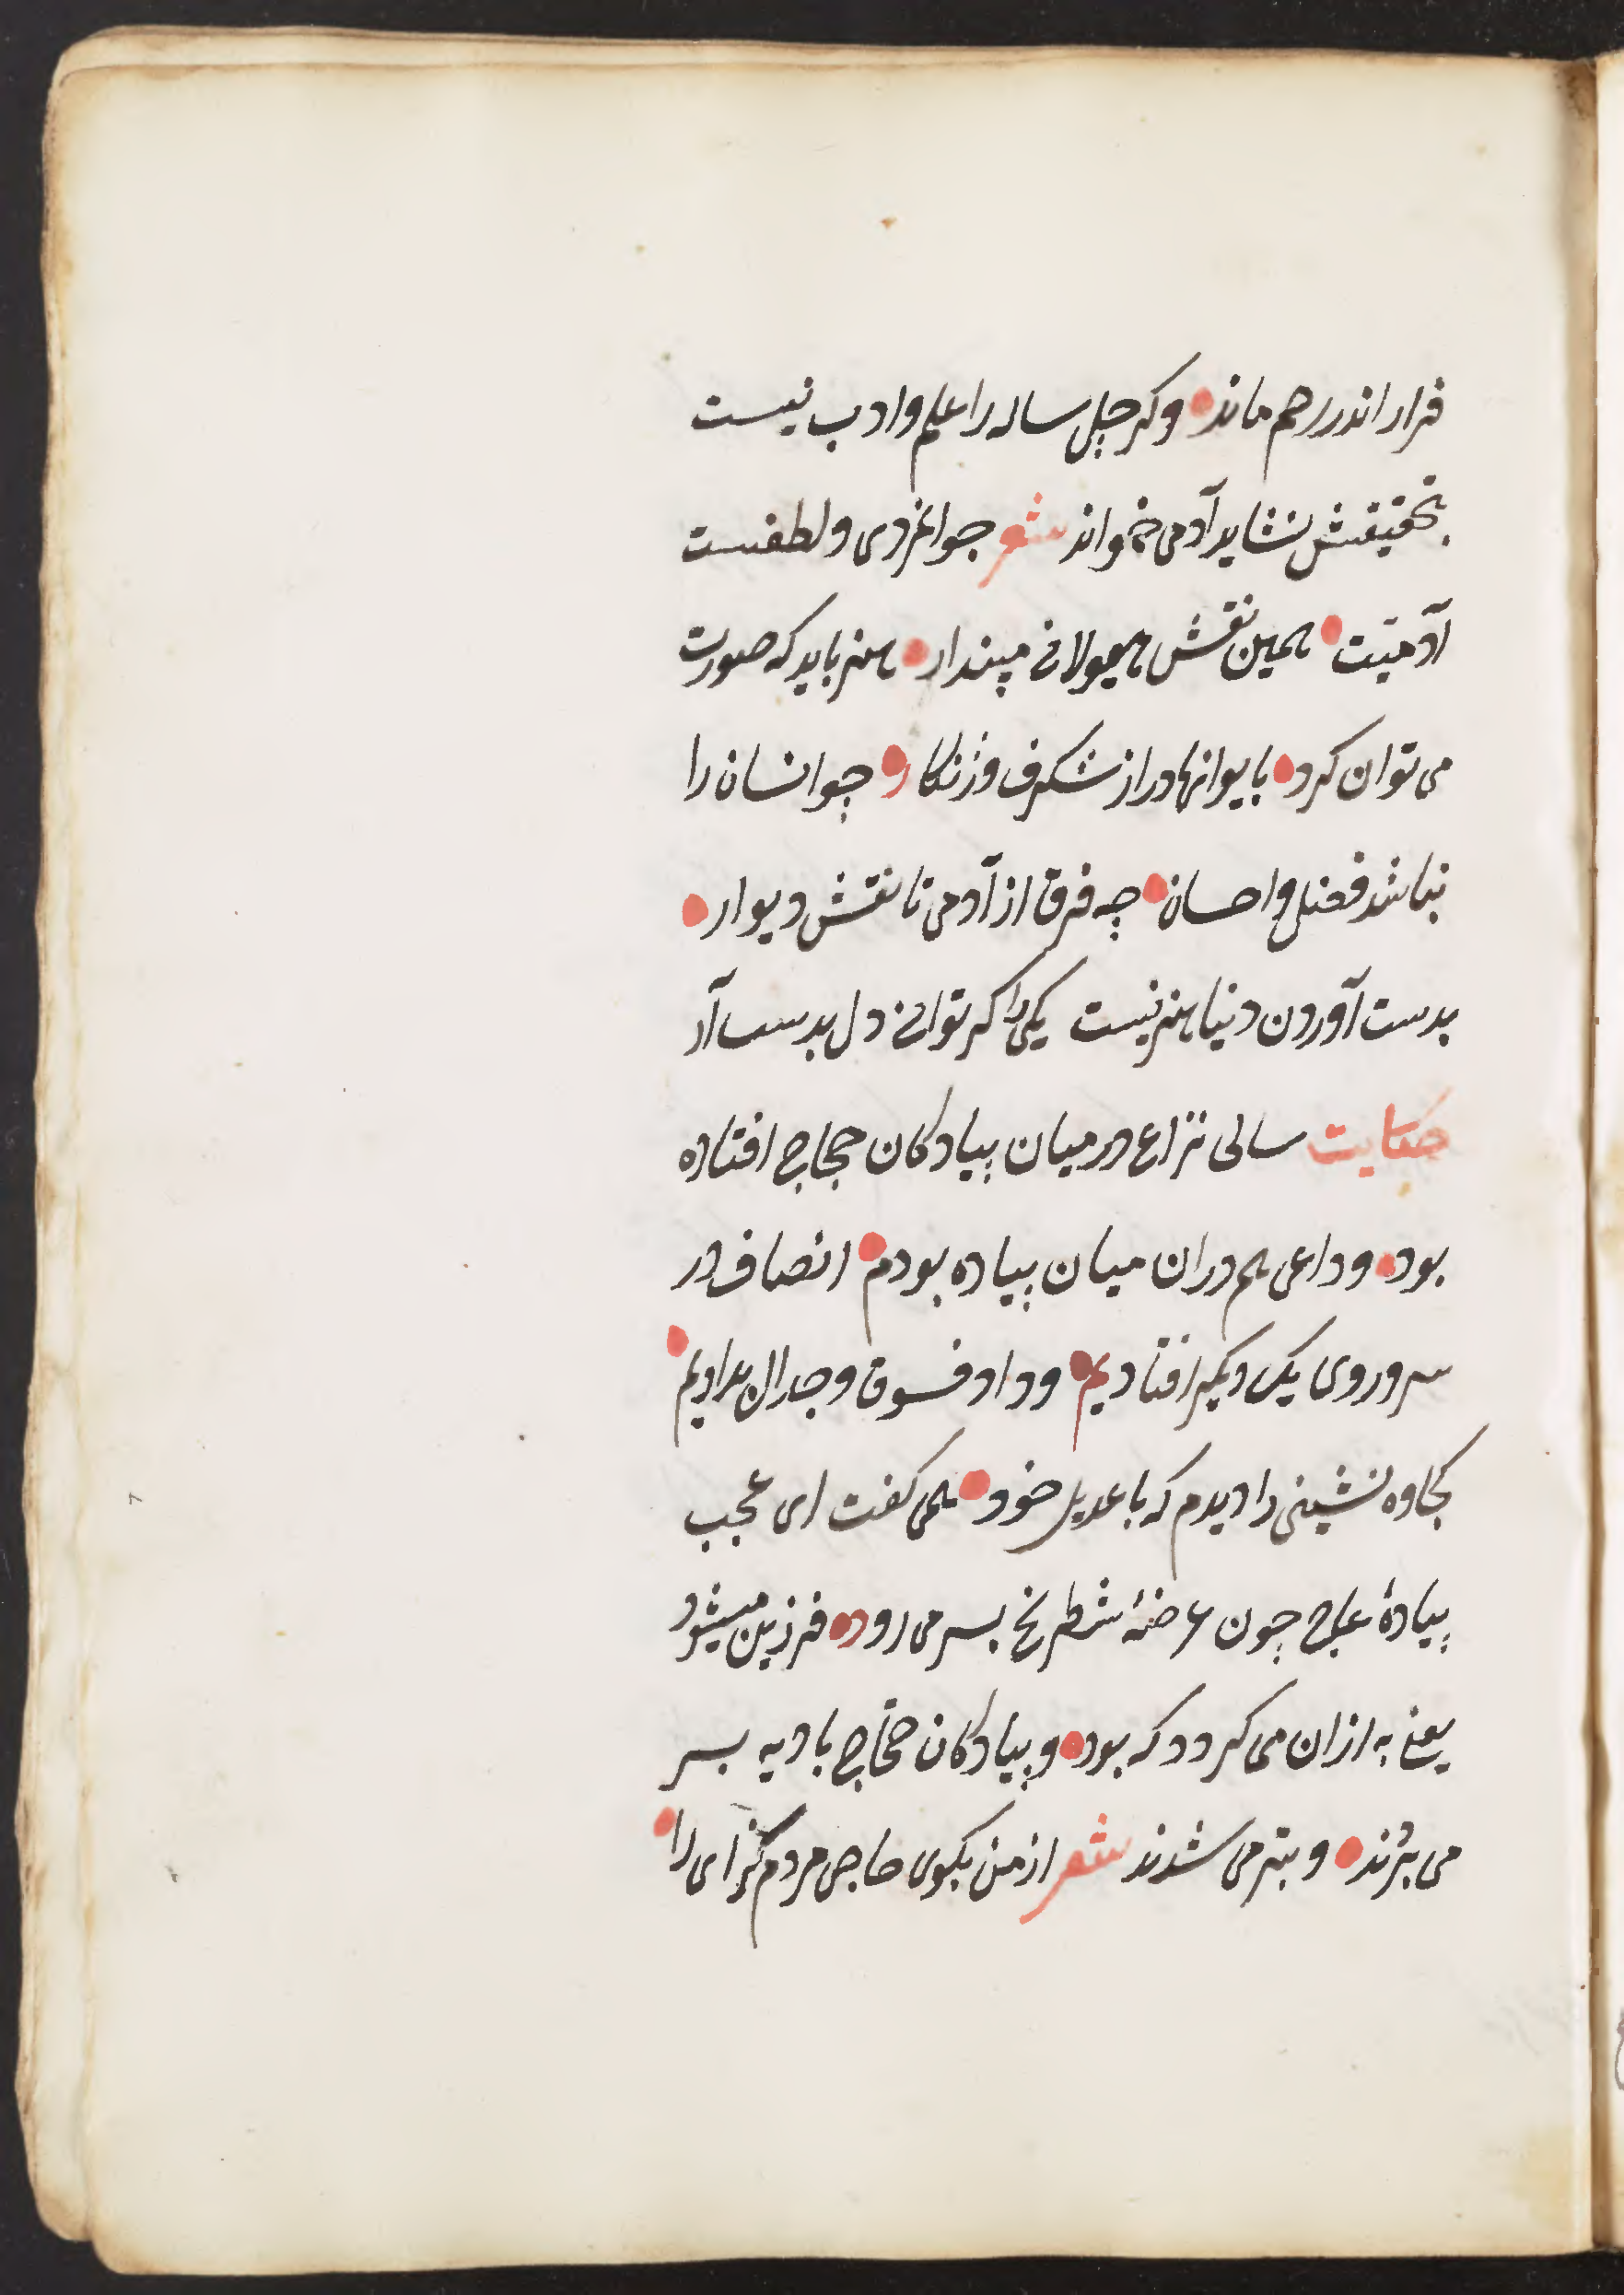 قرار اندر رحم ماند وکر چهل ساله را علم وادب نیست
بتحقیقش نشاید آدمی خواند شعر جوانمردی ولطفست
آدمیّت همین نقش هیولانی مپندار هنر باید که صورت
می توان کرد بایوانها در از شنکرف وزنکار چو انسان را
نباشد فضل واحسان چه فرق از آدمی تا نقش دیوار
بدست آوردن دنیا هنر نیست یکی را کر توانی دل بدست آر
حکایت سالی نزاع در میان پیادکان حجاج افتاده
بود وداعی هم دران میان پیاده بودم انصاف در
سر وروی یک دیکر افتادیم وداد فسوق وجدال بدادیم
کجاوه نشینی را دیدم که با عدیل خود همی کفت ای عجب
پیادهٔ عاج چون عرضهٔ شطرنج بسر می رود فرزین میشود
یعنی به ازان می کردد که بود وپیادکان حجّاج بادیه بسر
می برند وبتر می شدند شعر از من بکوی حاجی مردم کزای را